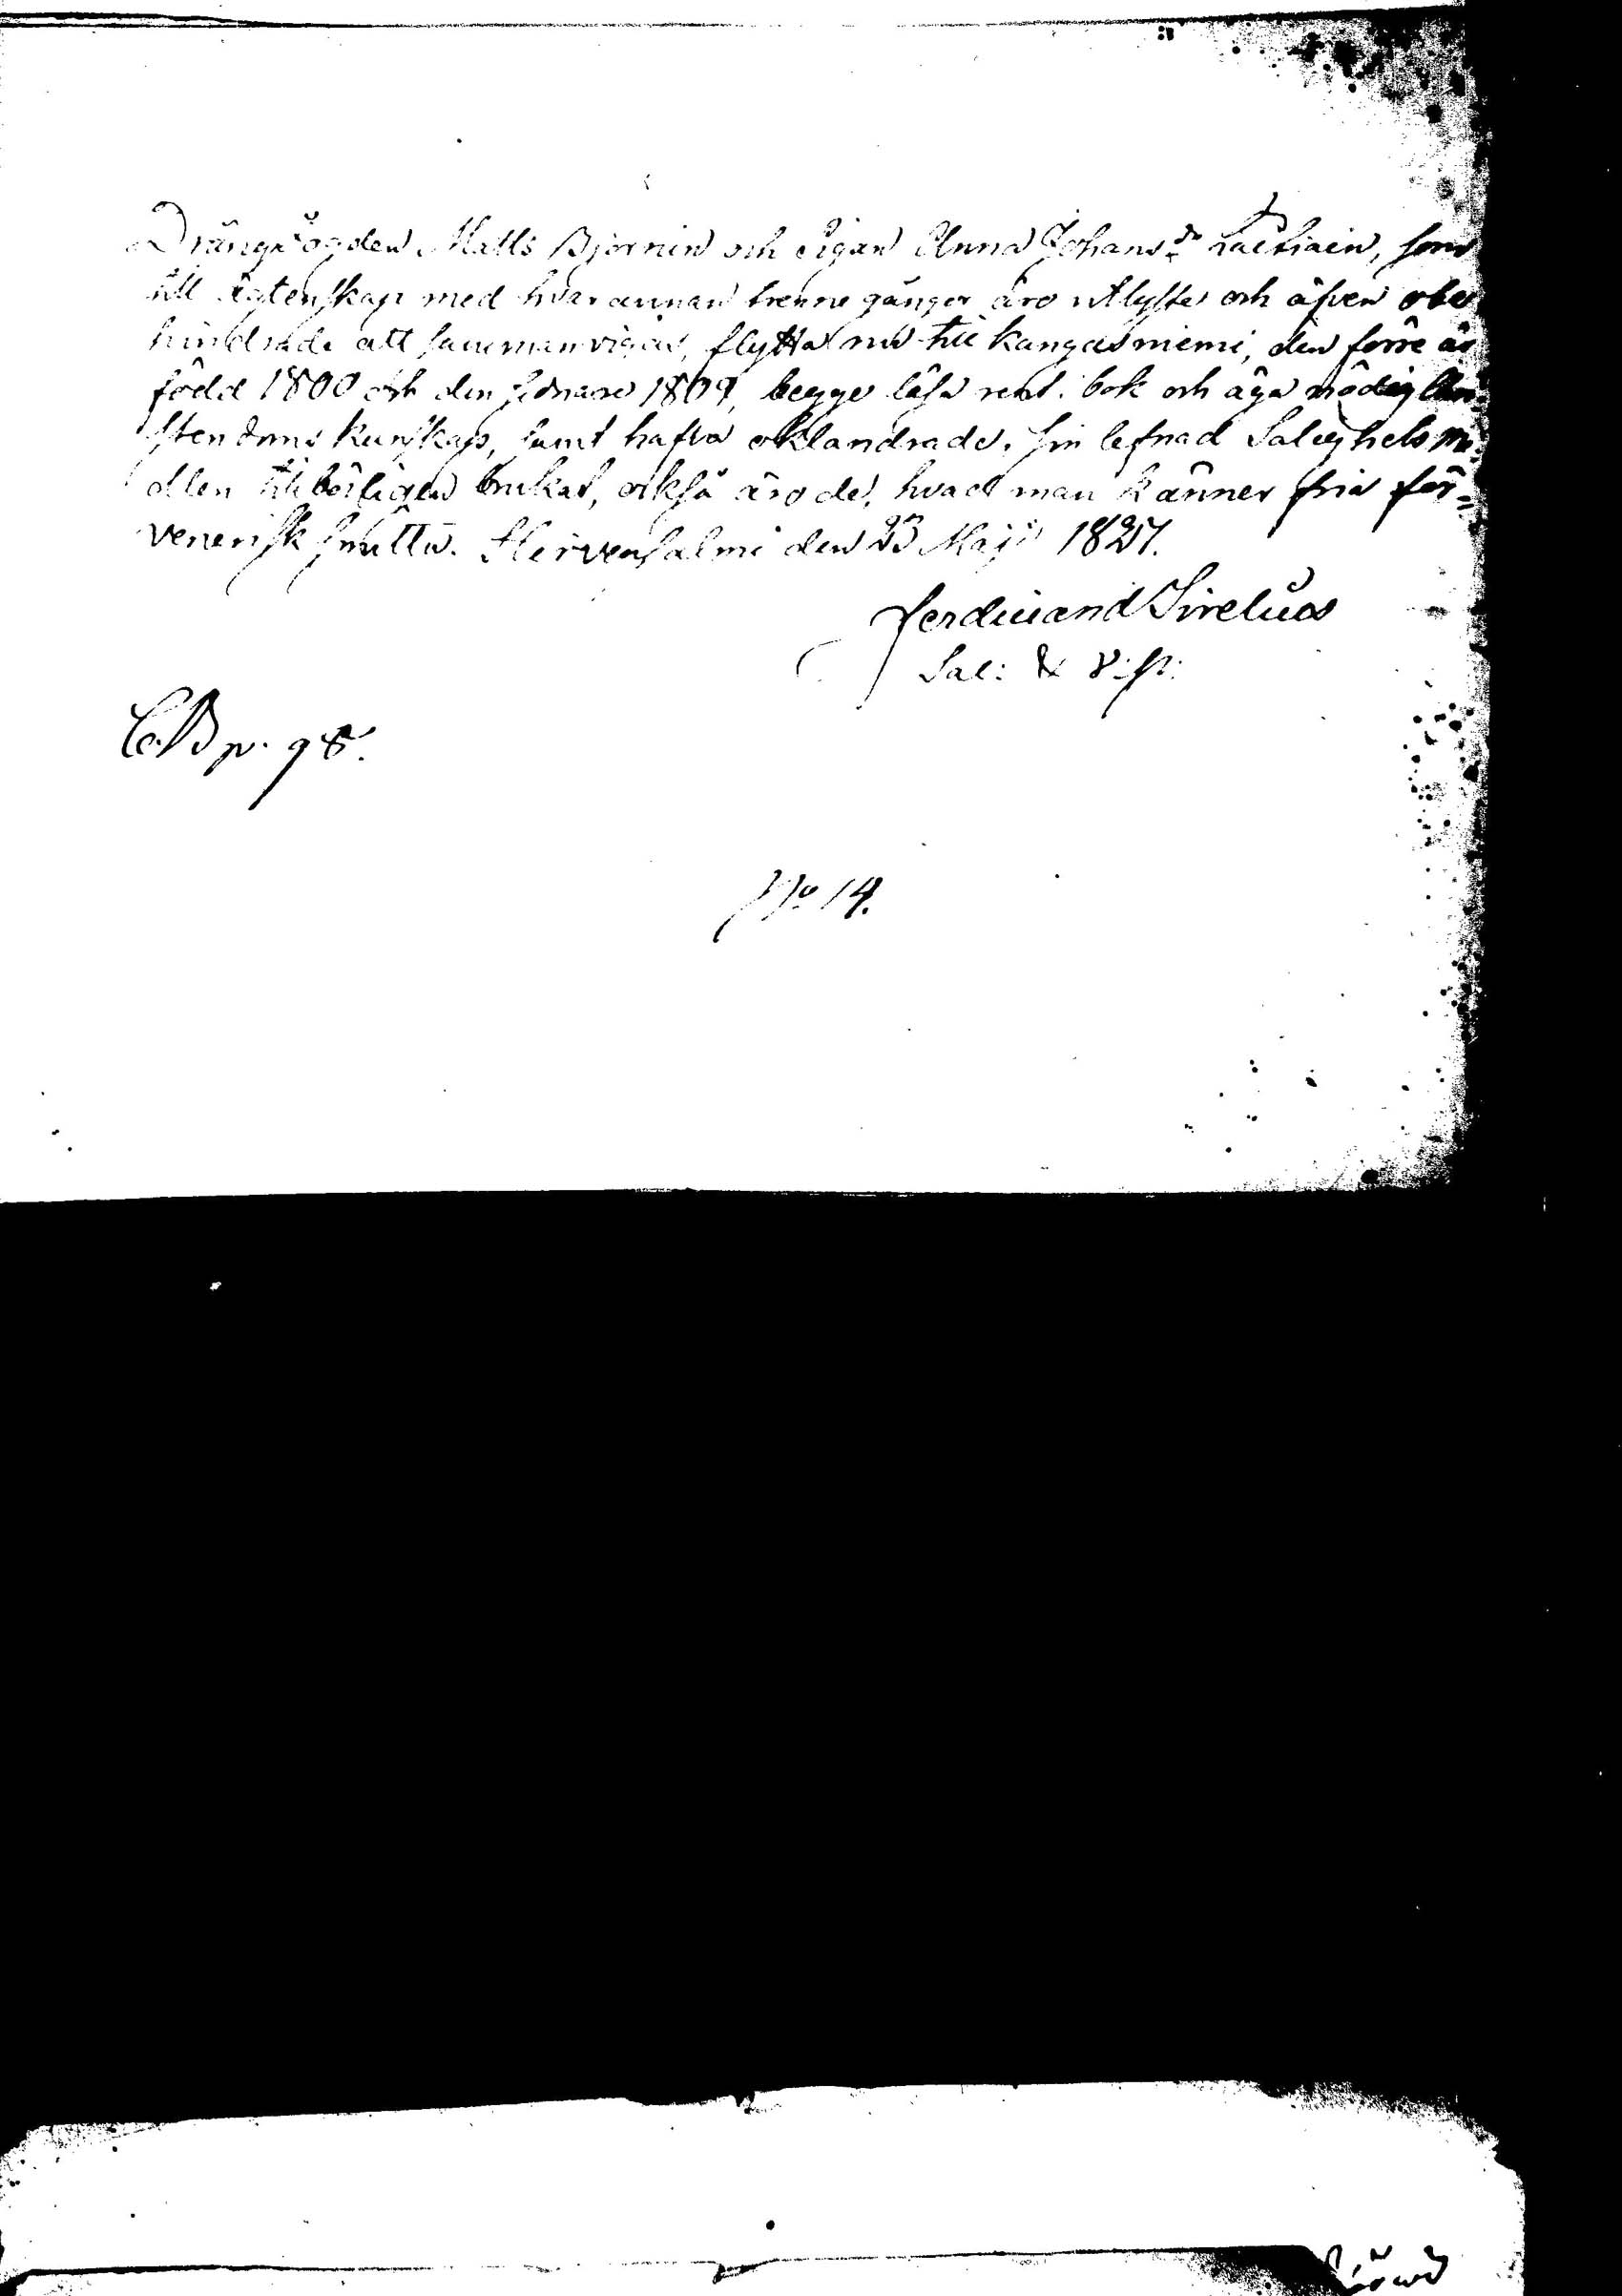 Drängvogden Matts Björnin och Pigan Anna Johansdr Laetiain, som
till ägtenskap med hvarannan trenne gånger äro utlyste och äfven obe
hindrade att sammanvigas, flytta nu till Kangasniemi, den förre är
född 1800 och den sednare 1809, begge läsa rent i bok och äga nödig Chri
stendoms kunskap, samt hafva oklandrade i sin lefnad Salighets me
dlen tillbörligen brukat, också äro de, hvad man känner fria för
venerisk smitta. Hirvensalmi den 23 Maji 1827.
Ferdinand Sirelius
Sac: & V: p:
C.B p. 98.
No 14.